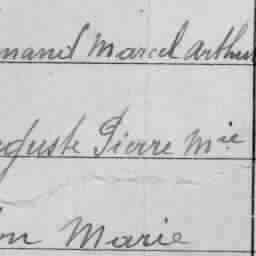 mand Marcel Arthur
guste Pierre Mie
on Marie